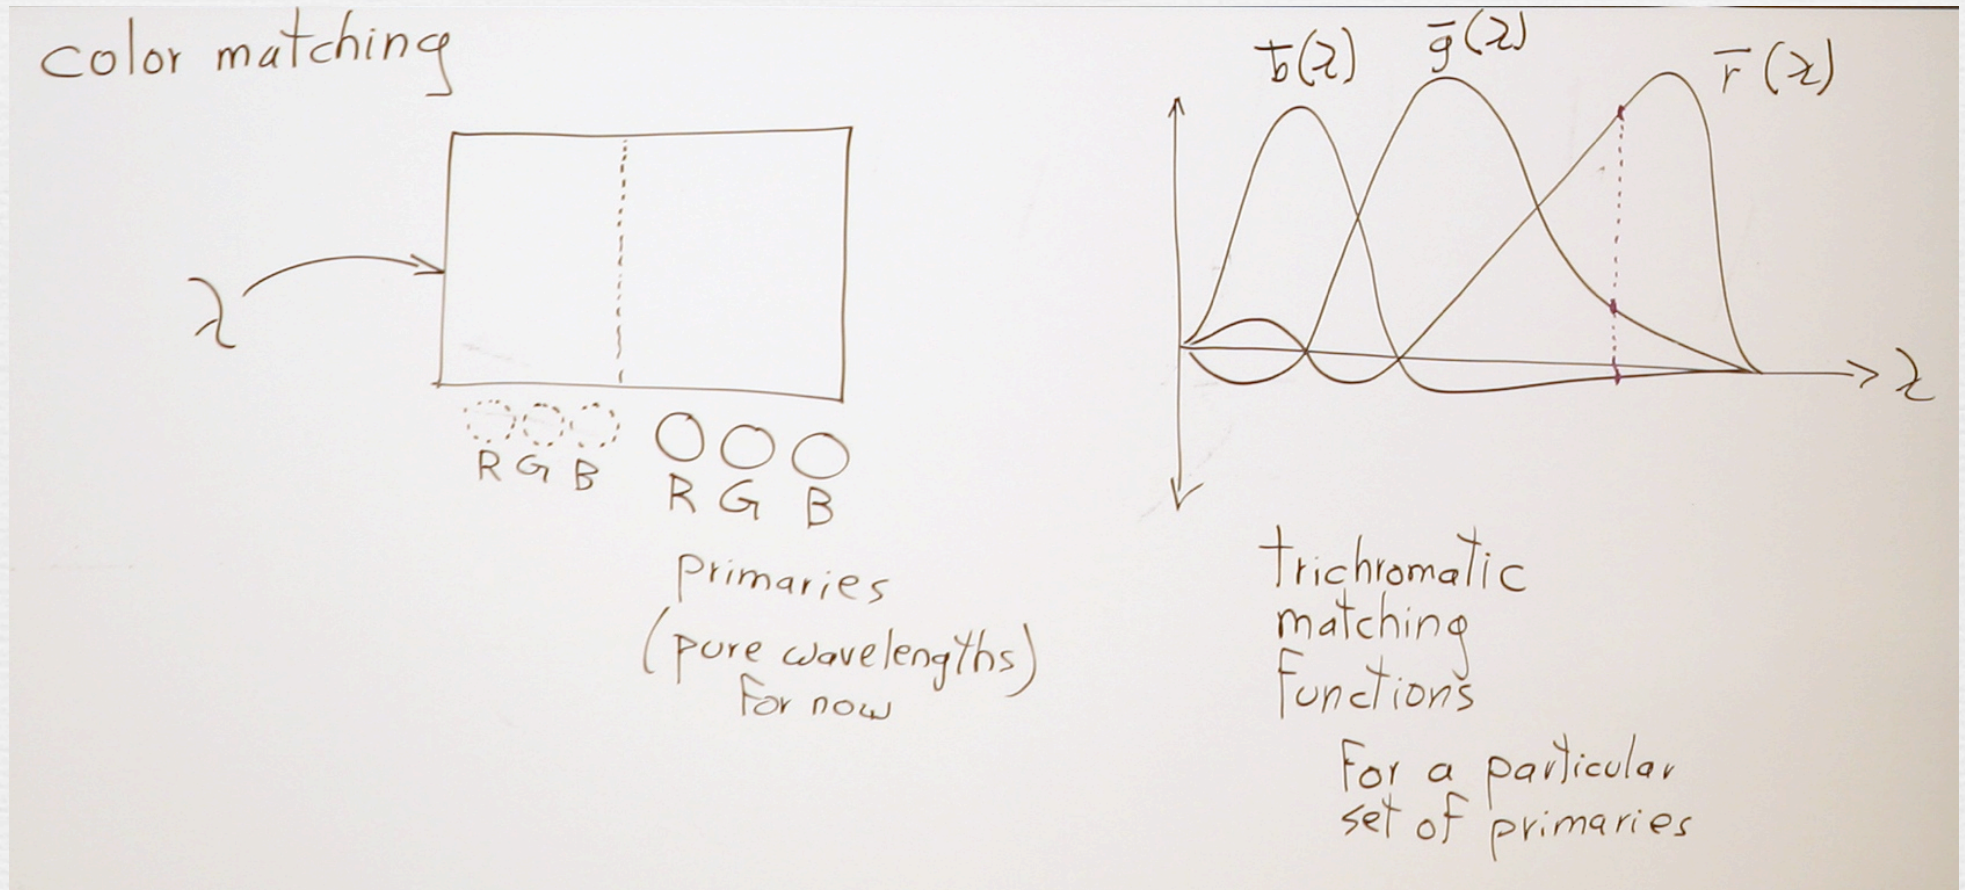 color matching
λ
R G B
R G B
primaries
(pure wavelengths)
for now
b̄(λ) ḡ(λ) r̄(λ)
λ
trichromatic
matching
functions
for a particular
set of primaries